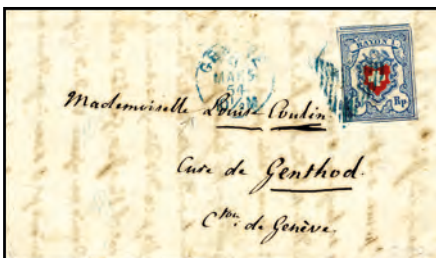 RAYON I
MARS
54
Rp
Mademoiselle Louise Coulin
Cure de Genthod.
Cton. de Genève.